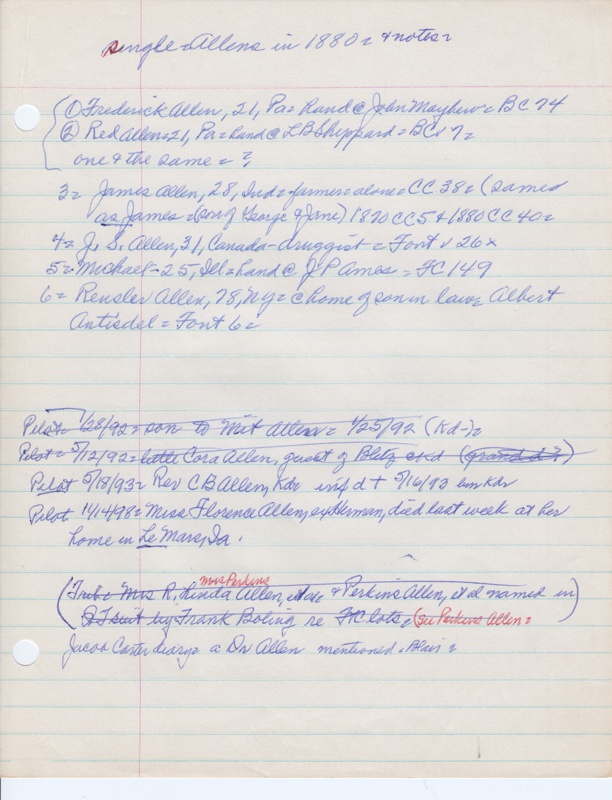 single = Allens in 1880 = & notes =
① Frederick Allen, 21, Pa = hand @ John Mayhew = BC 74
② Red Allen = 21, Pa = hand @ L B Sheppard = BC 7 =
one & the same = ?
3 = James Allen, 28, Ind = farmer = alone = CC 38 = (same
as James = (son of George & Jane) 1870 CC5 & 1880 CC 40 =
4 = J. S. Allen, 31, Canada - druggist = Font 26
5 = Michael - 25, Ill = hand @ J P Ames = FC 149
6 = Rensler Allen, 78, NY = @ home of son in law = Albert
Antisdel = Font 6 =
Pilot = 1/28/92 = son to Mat Allen = 1/25/92 (Kd-) =
Pilot = 5/12/92 = little Cora Allen, guest of Blitz and (grand d?)
Pilot 5/18/93 = Rev C B Allen, Kdr inf d + 5/16/93 bur Kdr
Pilot 1/14/98 = Miss Florence Allen, ex Herman, died last week at her
home in Le Mars, Ia.
Mrs Perkins
(Trib = Mrs R. Linda Allen, & Perkins Allen, et al named in)
suit by Frank Boling re FC lots. (see Perkins Allen =
Jacob Carter diary = a Dr Allen mentioned = Blair =